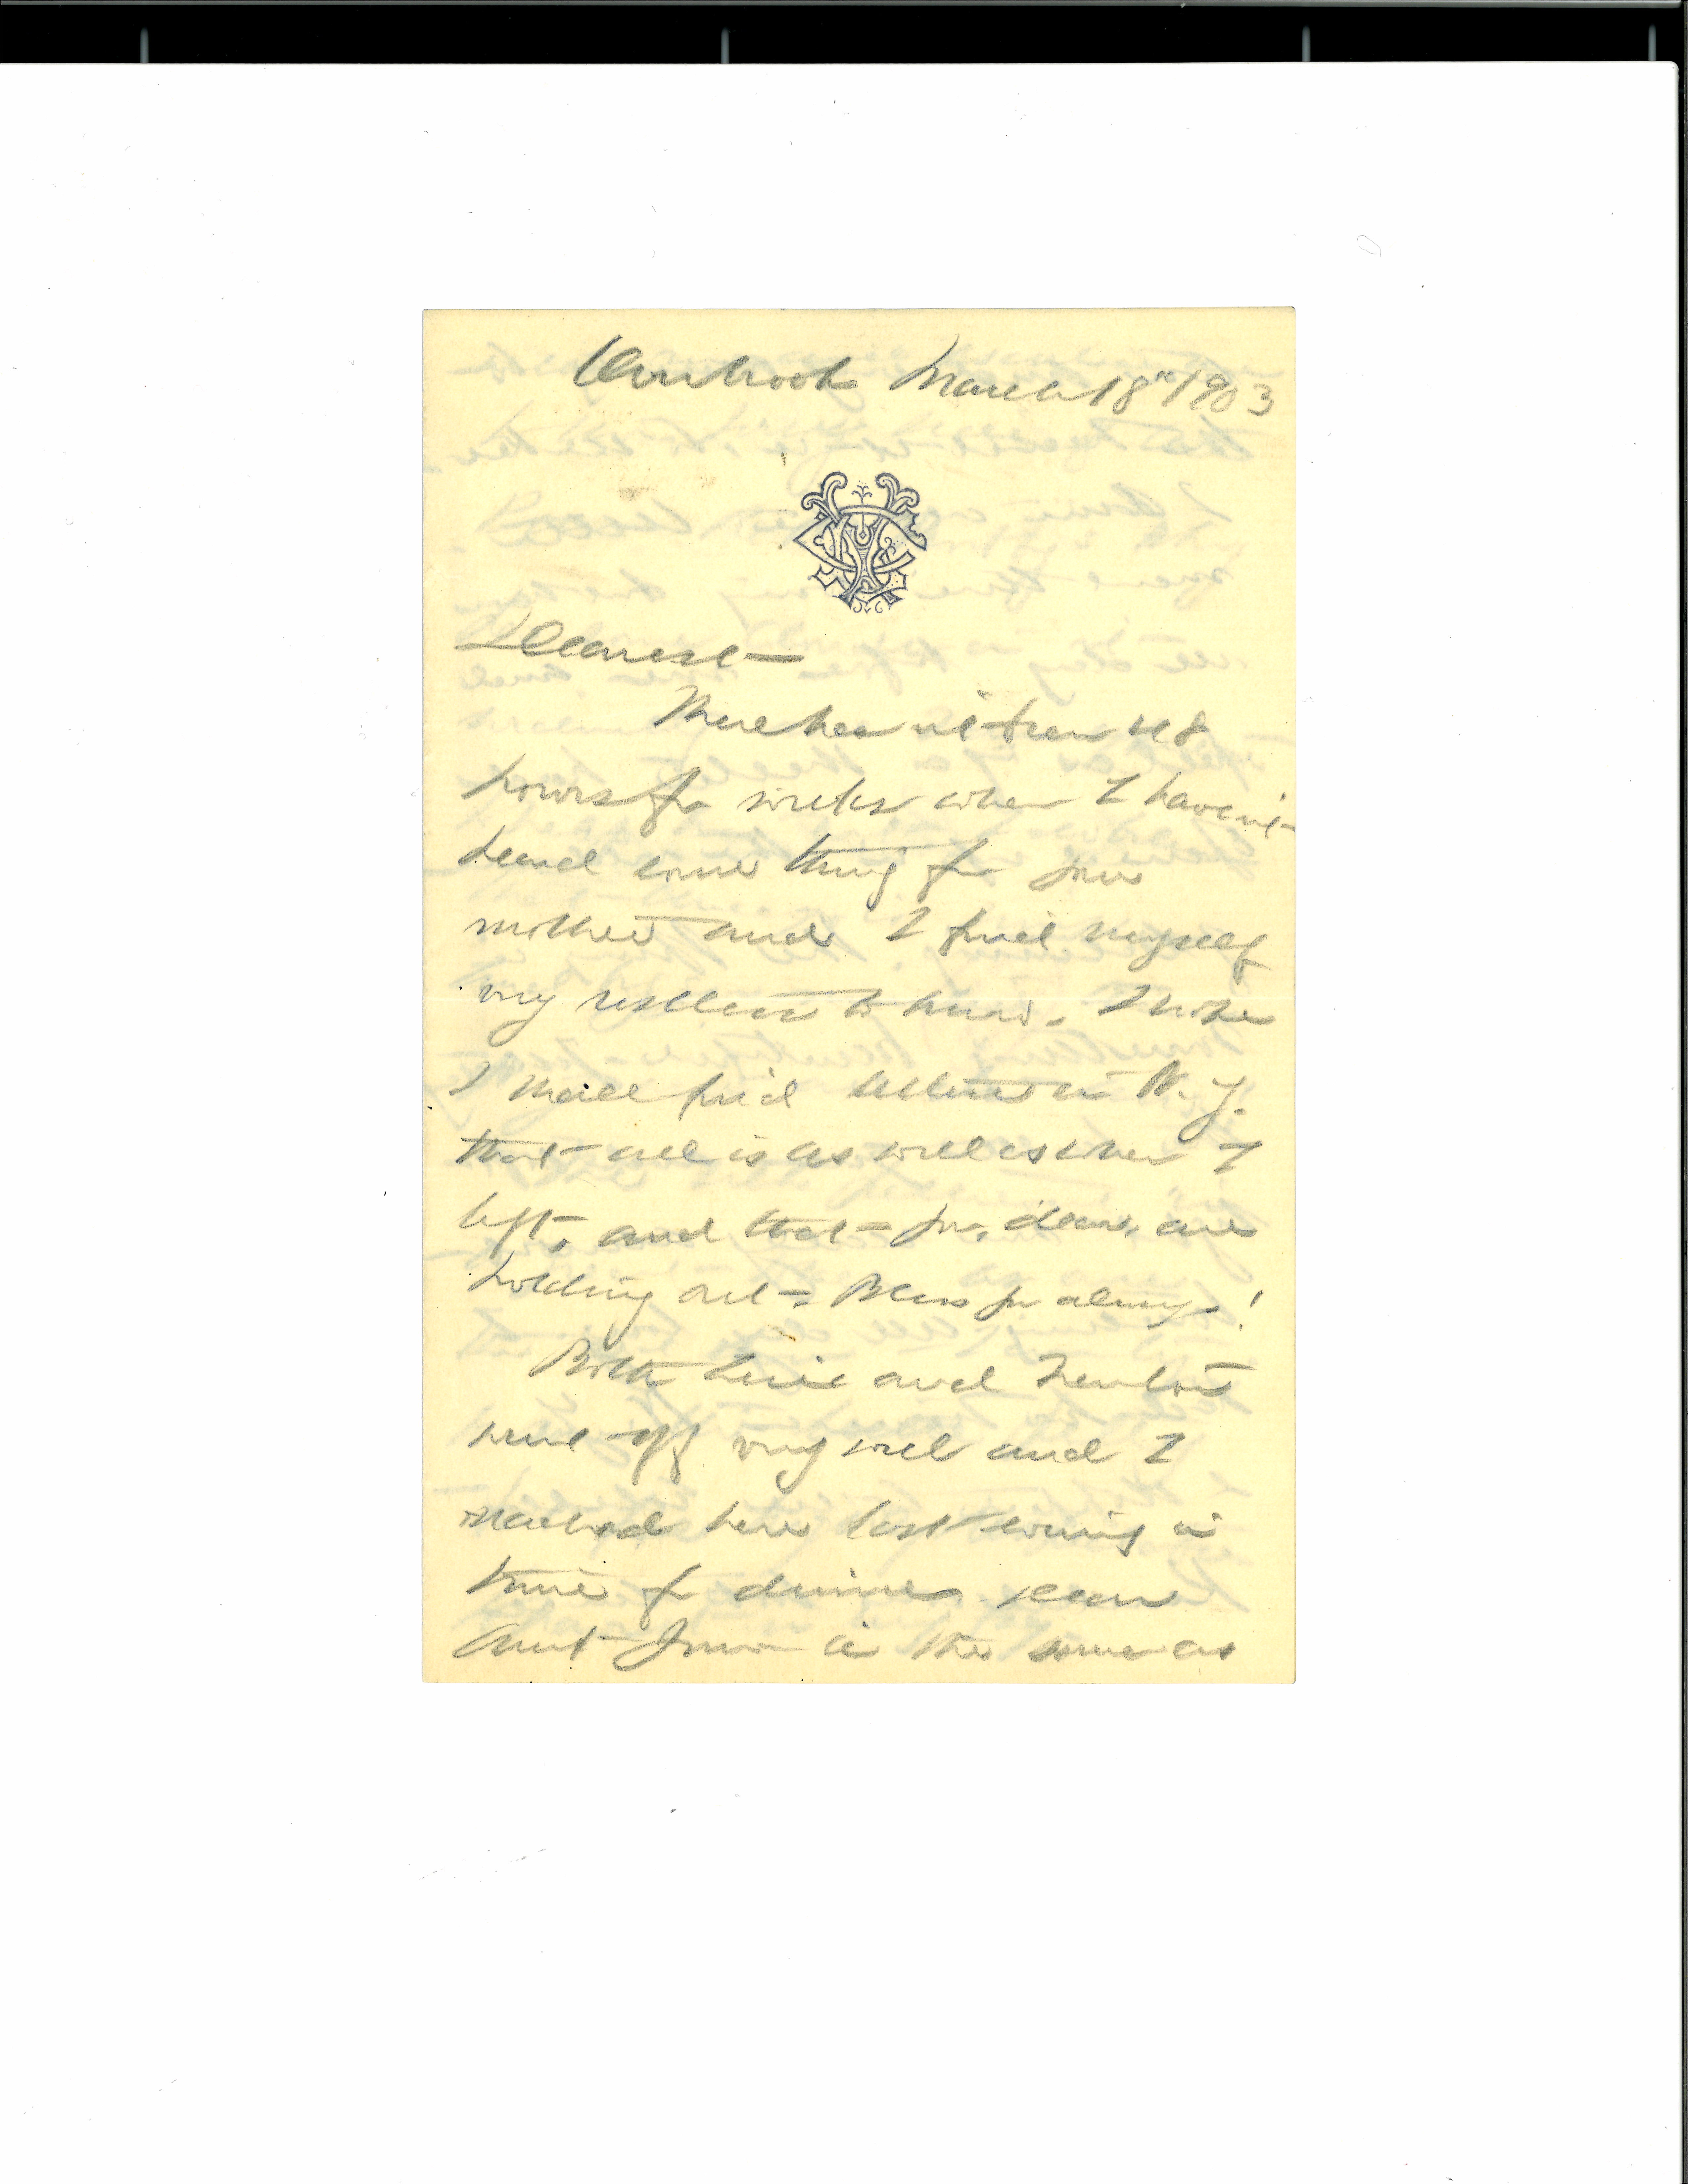 March 18th 1903
Dearest—
There has not been 48
hours for weeks when I haven't
heard some thing of your
mother and I find myself
very restless to know. I hope
I shall find letters in N. Y.
that all is as well as when I
left, and that you, dear, are
holding out. Bless you always!
Both and Trenton
went off very well and I
reached here last evening in
time for dinner. Dear
Aunt is the same as